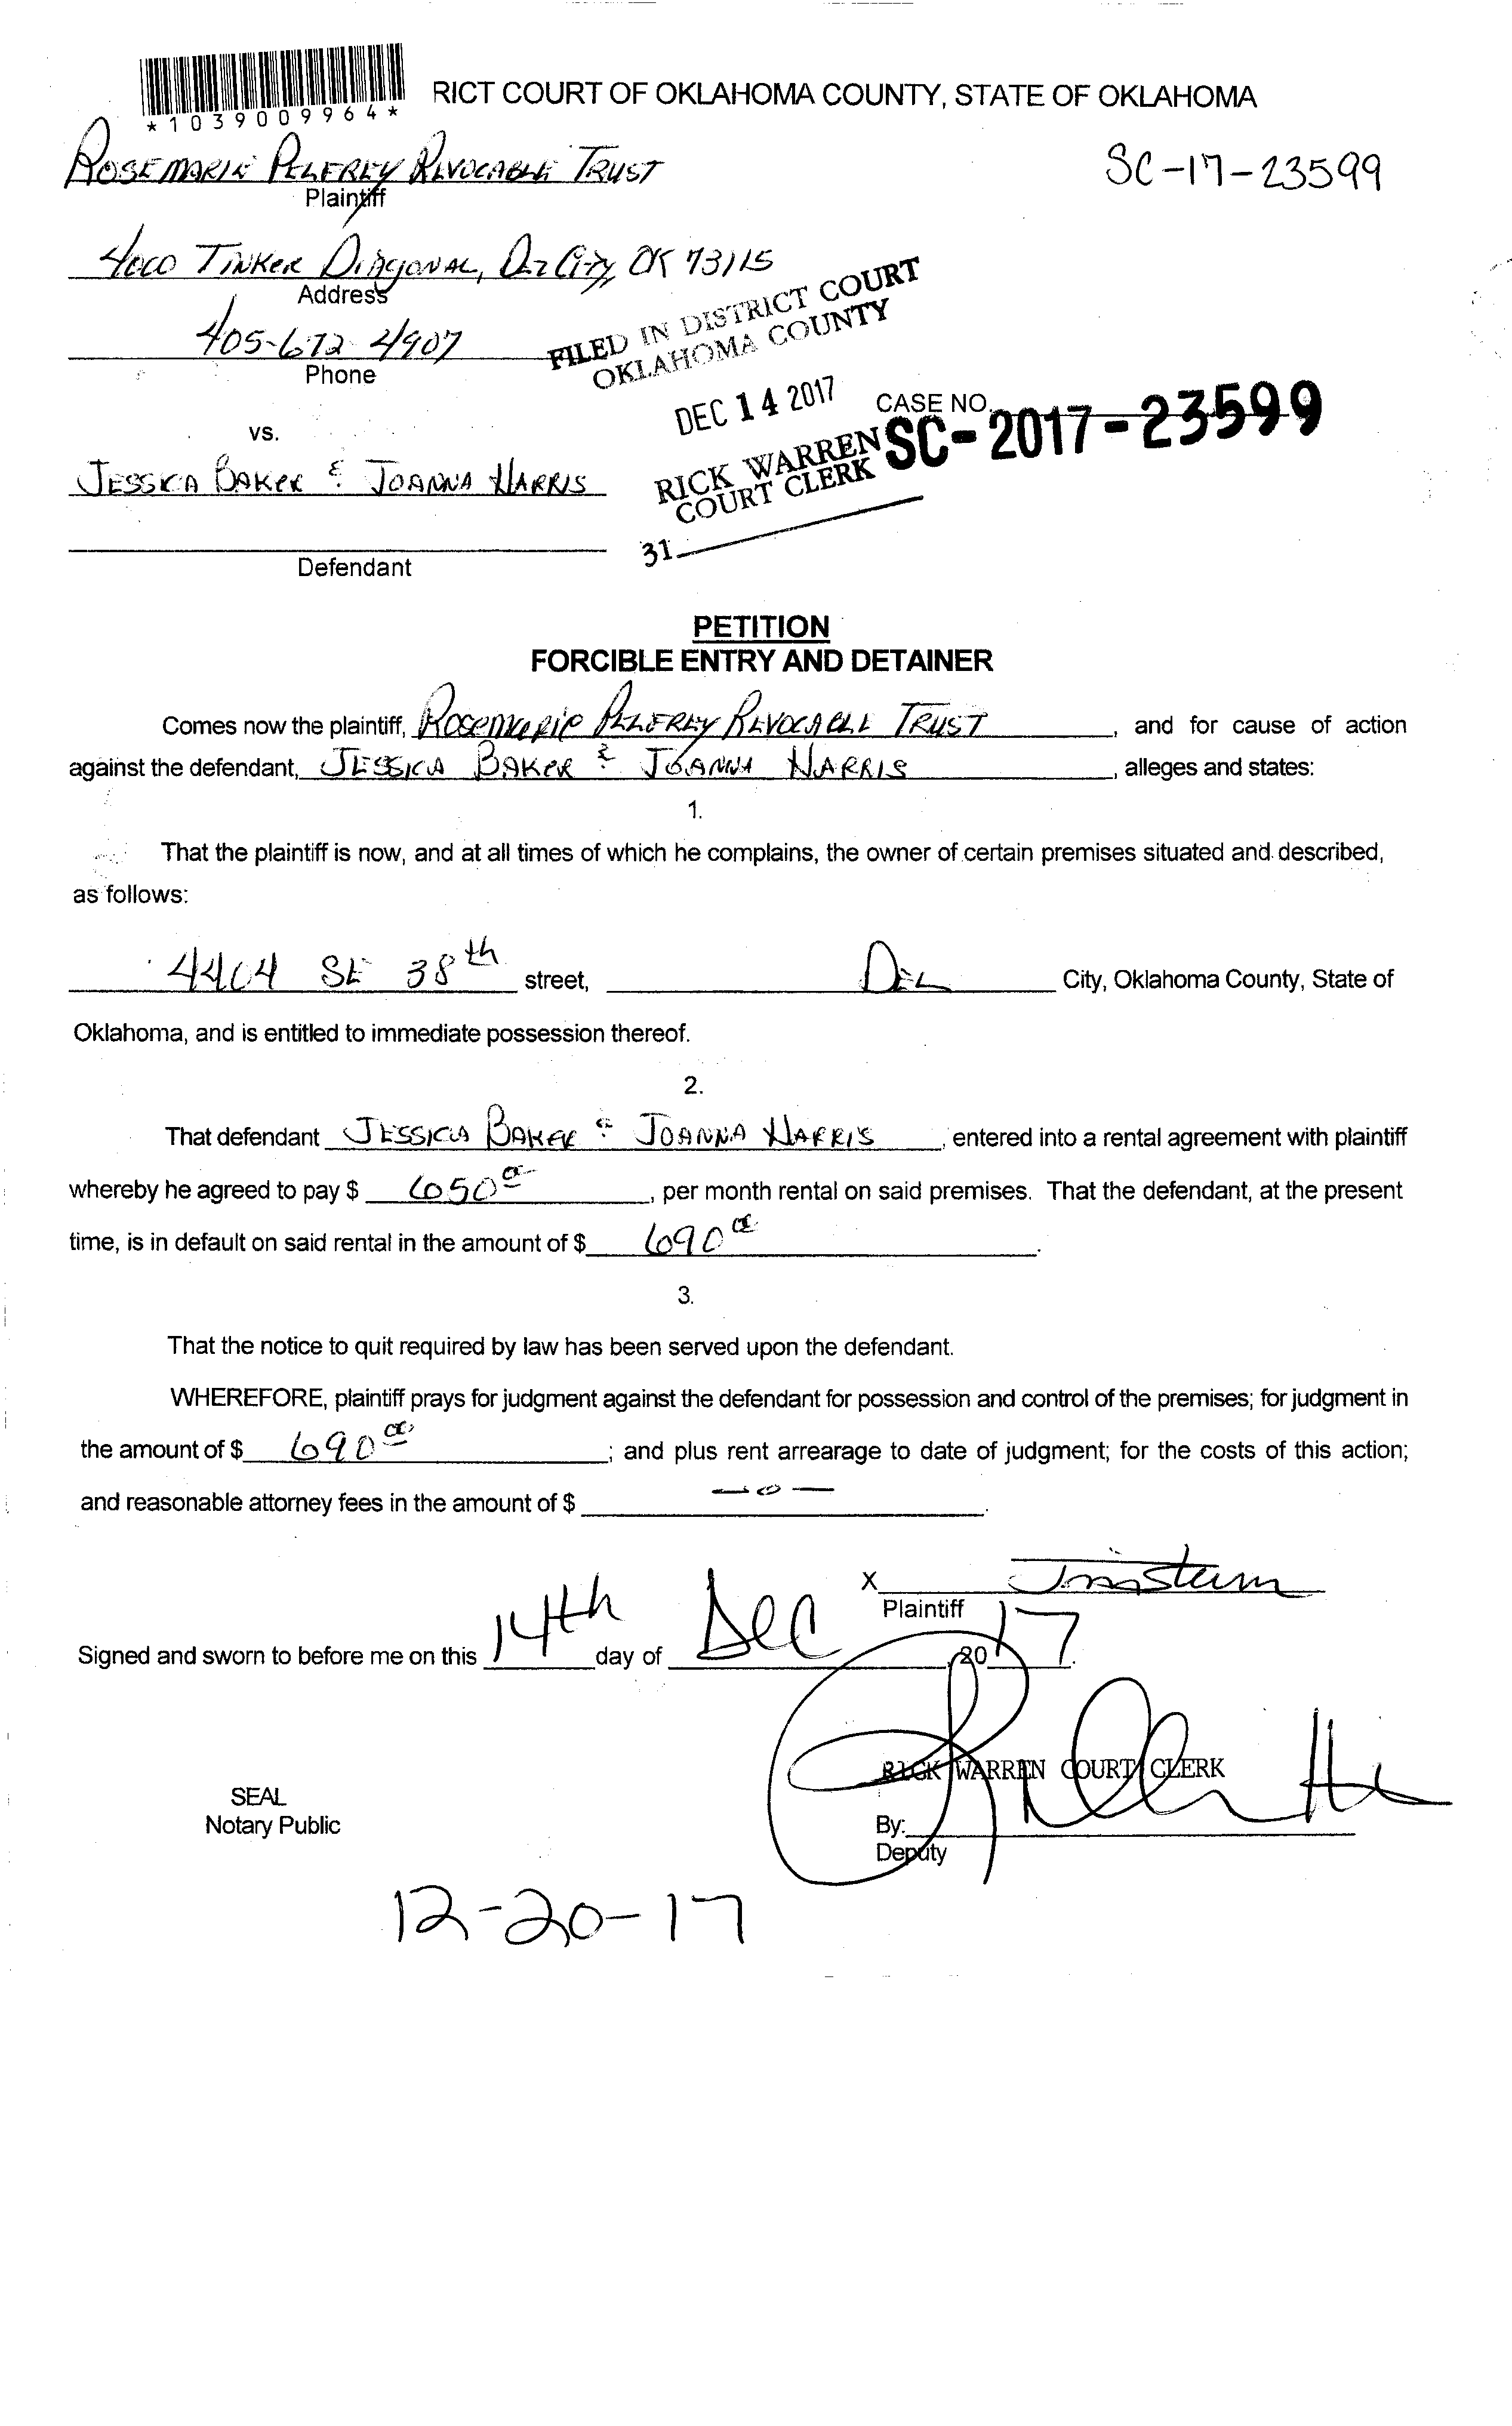 *1039009964*
RICT COURT OF OKLAHOMA COUNTY, STATE OF OKLAHOMA
ROSEMARIE PELFREY REVOCABLE TRUST
SC-17-23599
Plaintiff
4000 TINKER DIAGONAL, DEL CITY, OK 73115
Address
405-672-4907
Phone
FILED IN DISTRICT COURT
OKLAHOMA COUNTY
DEC 14 2017
CASE NO. SC-2017-23599
vs.
RICK WARREN
COURT CLERK
JESSICA BAKER & JOANNA HARRIS
31
Defendant
PETITION
FORCIBLE ENTRY AND DETAINER
Comes now the plaintiff, ROSEMARIE PELFREY REVOCABLE TRUST, and for cause of action
against the defendant, JESSICA BAKER & JOANNA HARRIS, alleges and states:
1.
That the plaintiff is now, and at all times of which he complains, the owner of certain premises situated and described,
as follows:
4404 SE 38th street, DEL City, Oklahoma County, State of
Oklahoma, and is entitled to immediate possession thereof.
2.
That defendant JESSICA BAKER & JOANNA HARRIS, entered into a rental agreement with plaintiff
whereby he agreed to pay $ 650 00, per month rental on said premises. That the defendant, at the present
time, is in default on said rental in the amount of $ 690 00.
3.
That the notice to quit required by law has been served upon the defendant.
WHEREFORE, plaintiff prays for judgment against the defendant for possession and control of the premises; for judgment in
the amount of $ 690 00; and plus rent arrearage to date of judgment; for the costs of this action;
and reasonable attorney fees in the amount of $ -0-.
X
Plaintiff
Signed and sworn to before me on this 14th day of Dec, 2017.
RICK WARREN COURT CLERK
SEAL
Notary Public
By:
Deputy
12-20-17